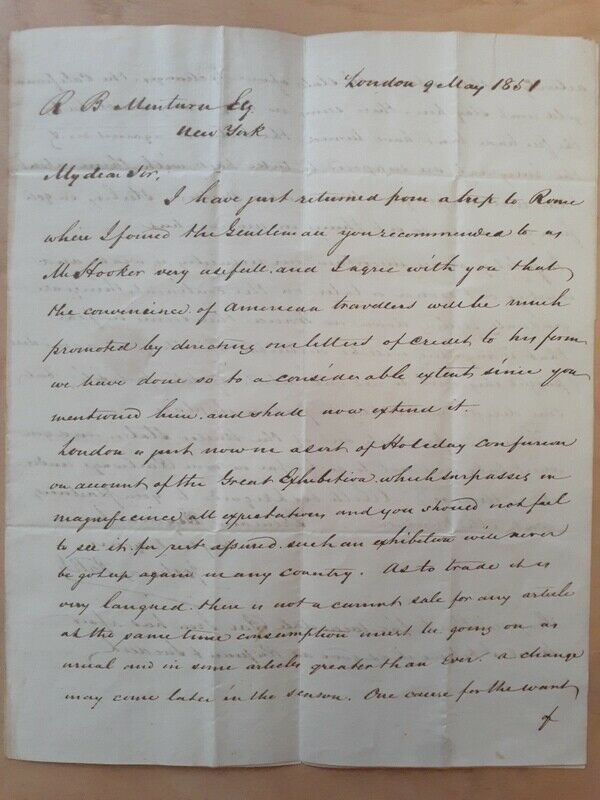 London 9 May 1851
R B Minturn Esq
New York
My dear Sir,
I have just returned from a trip to Rome
where I found the Gentleman you recommended to us
Mr Hooker very usefull. and I agree with you that
the convenince of American travellers will be much
promoted by directing our letters of credit to his firm
we have done so to a considerable extent since you
mentioned him. and shall now extend it.
London is just now in a sort of Holiday confusion
on account of the Great Exhibition. which surpasses in
magnificince all expectations and you should not fail
to see it. for rest assured. such an exhibition will never
be got up again in any country. As to trade it is
very langued. there is not a current sale for any article
at the same time consumption must be going on as
usual and in some articles greater than Ever. a change
may come later in the season. One cause for the want
of